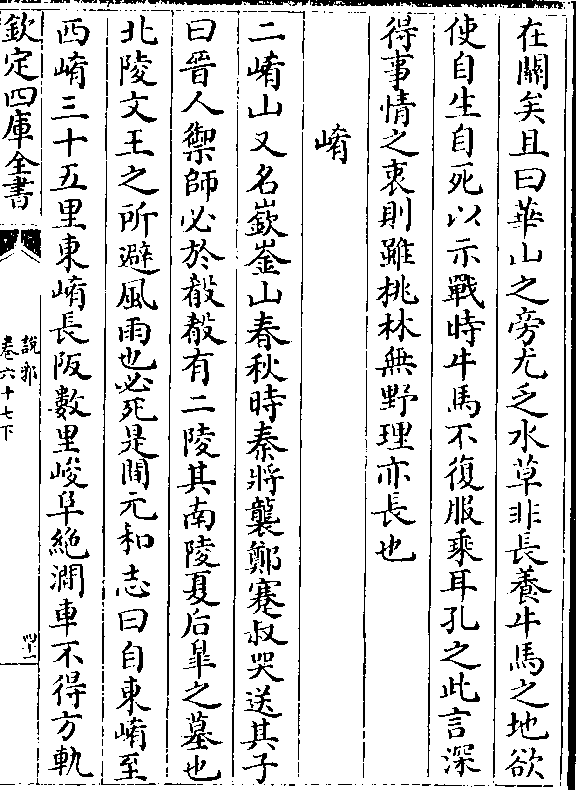 在闗矣且曰華山之旁尤乏水草非長養牛馬之地欲
使自生自死以示戰時牛馬不復服乘耳孔之此言深
得事情之衷則雖桃林無野理亦長也
崤
二崤山又名嶔崟山春秋時秦將襲鄭蹇叔哭送其子
曰晉人禦師必於殽殽有二陵其南陵夏后臯之墓也
北陵文王之所避風雨也必死是間元和志曰自東崤至
西崤三十五里東崤長阪數里峻阜絶澗車不得方軌
欽定四庫全書
說郛
卷六十七下
四十一